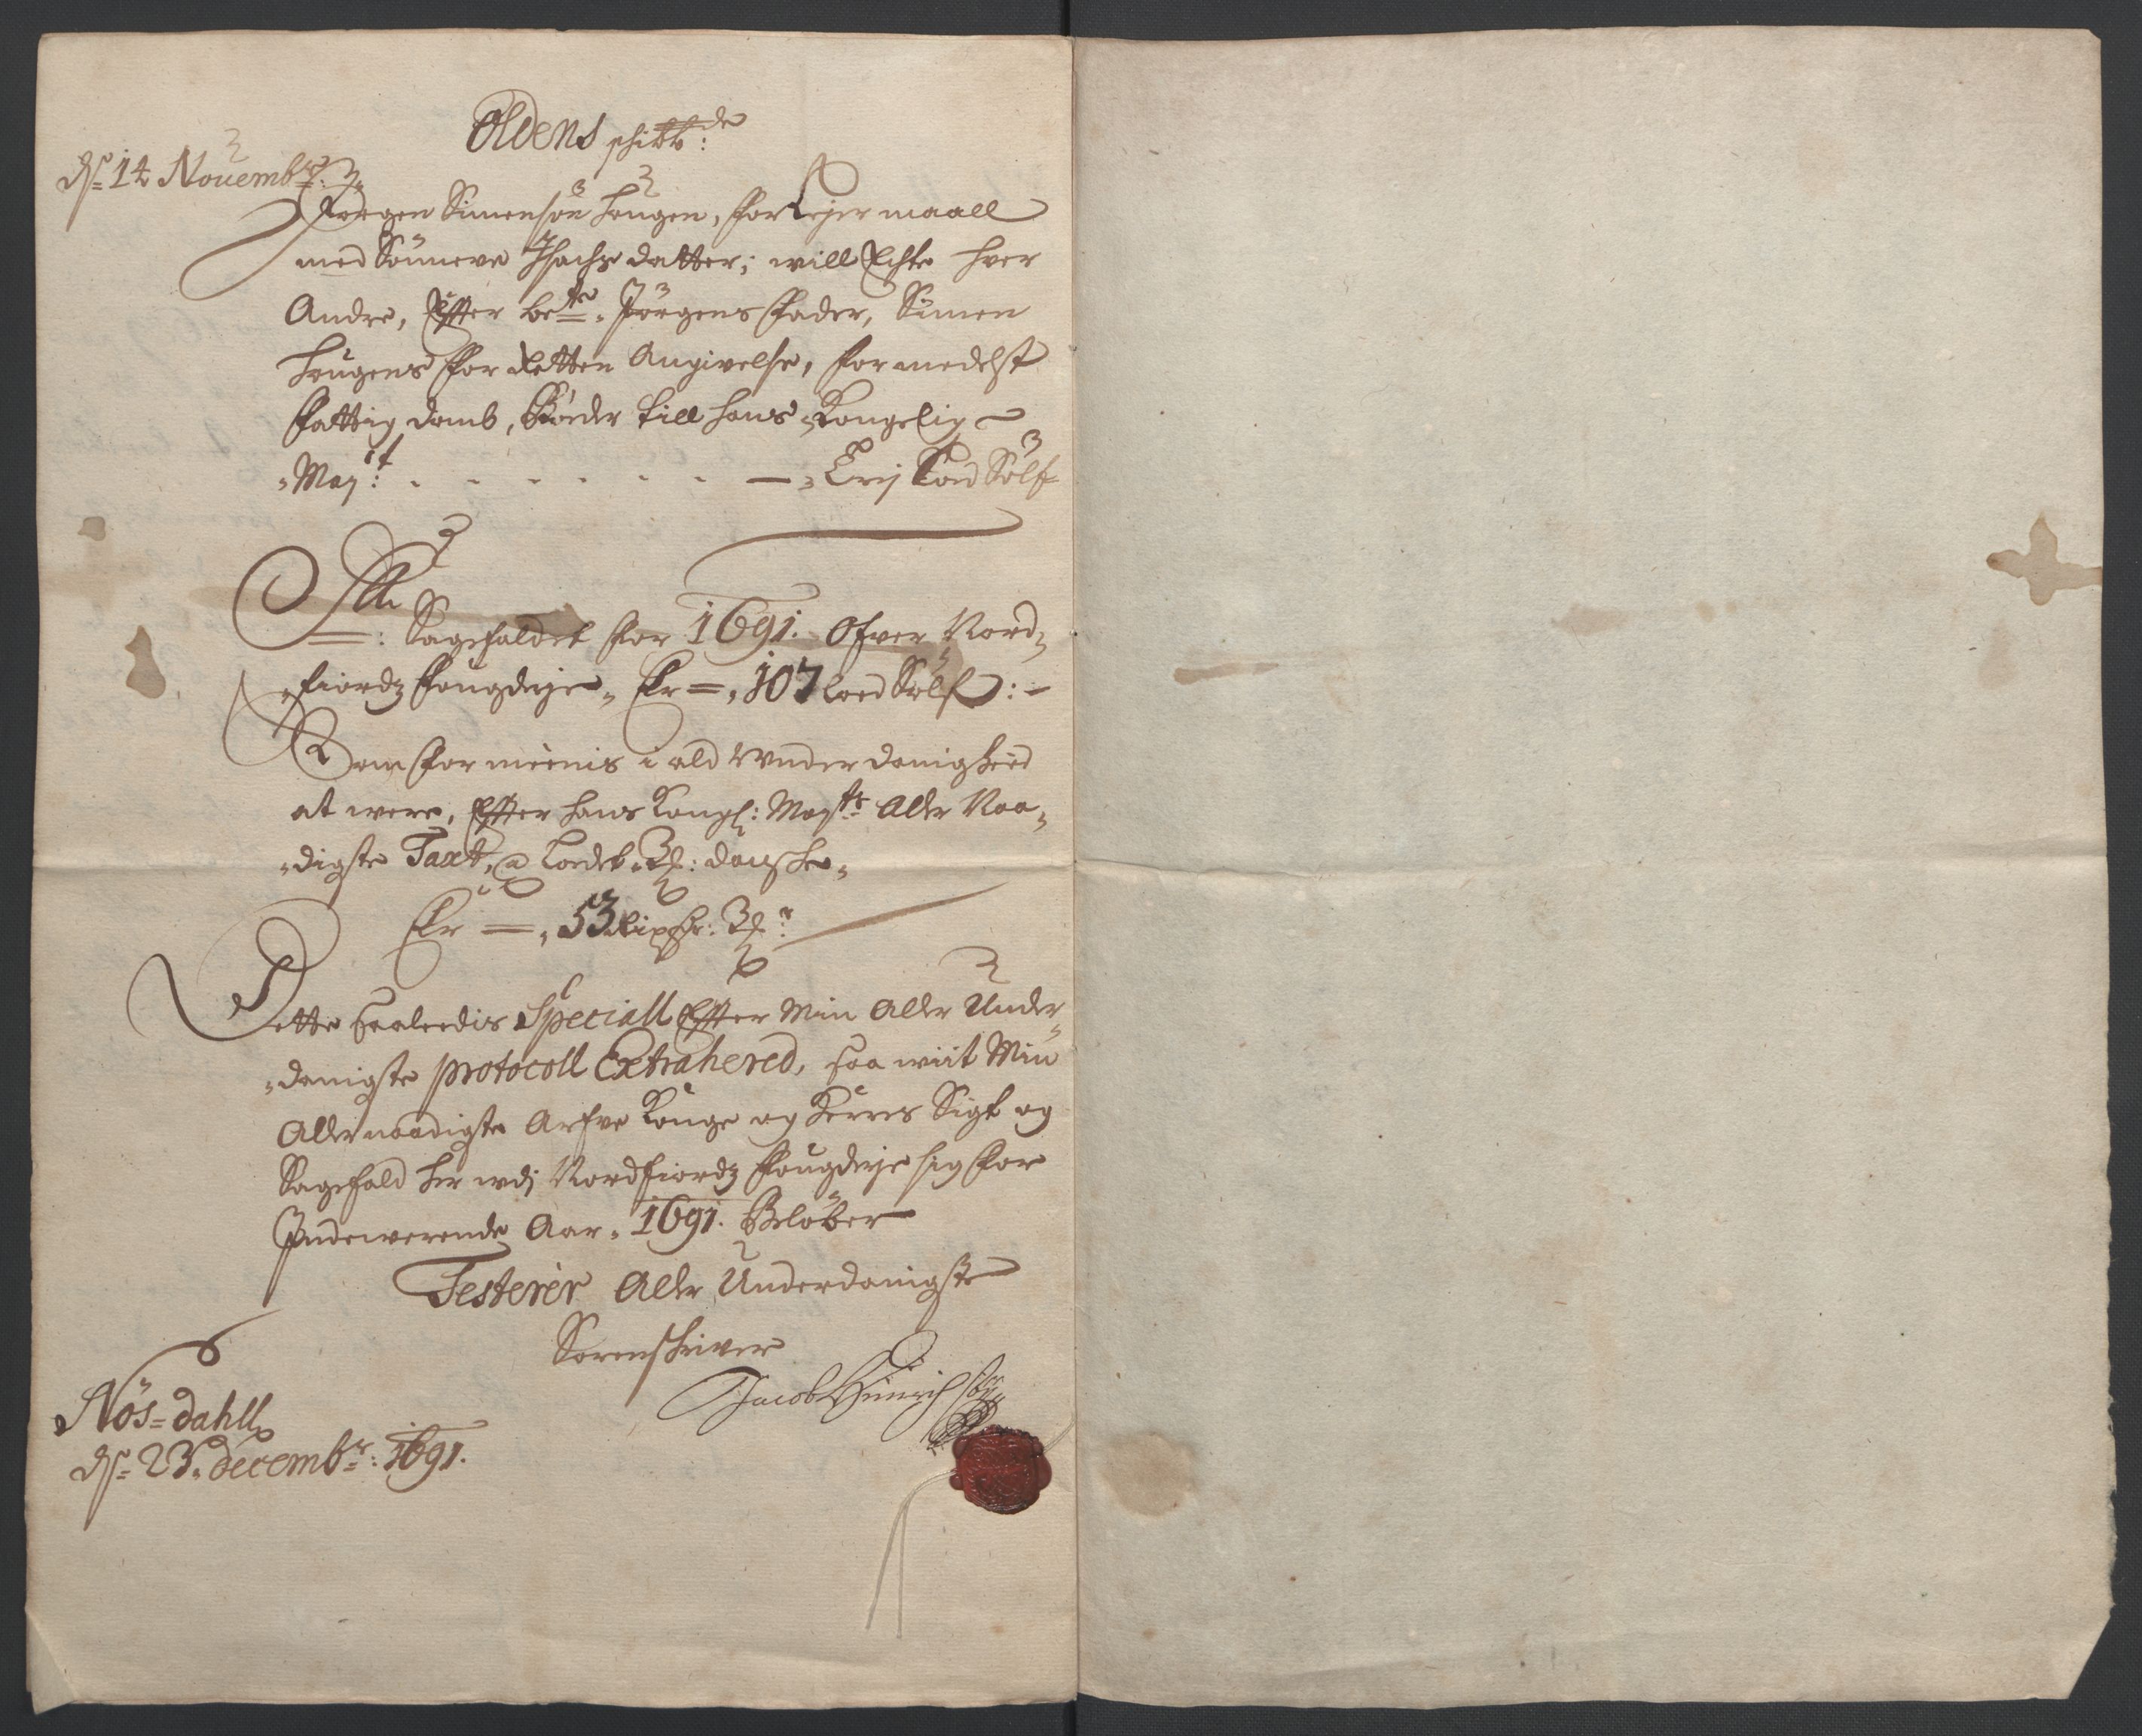 Oldens schibb:de
ds= 14 Nouembr:
Jørgen Simensøn Hougen, for Lejermaall
med Sønneve Isachs datter; will Echte hver
Andre, Effter bete. Jørgens Fader, Simen
Hougens for Retten Angivelse, formedelst
Fattigdomb, Bøeder till Hans Kongelig
Mayt: - - - - - - Trej Lod Sølf
Alt
Sagefaldet for 1691. Ofver Nord-
fiordz Fougderje, Er = 107 Loed Sølf:
Som formeenis i ald Vnderdanigheed
at were, Effter Hans Kongl: Mayts Aller Naa-
digste Taxt, a Loedet Rd: danske,
Er = 53 Rixdr: Rd:
Dette saaleedis Speciall Effter Min Aller Under-
danigste protocoll Extrahered, saa wiit Min
Allernaadigste Arfve Konge og Herres Sigt og
Sagefald her udj Nordfiordz Fougderje sig for
Indewerende Aar 1691. Beløber
Testerer Aller Underdanigste
Sorenskriver
Jacob Hinrichsen
Nös=dahll
ds= 23. decembr: 1691.